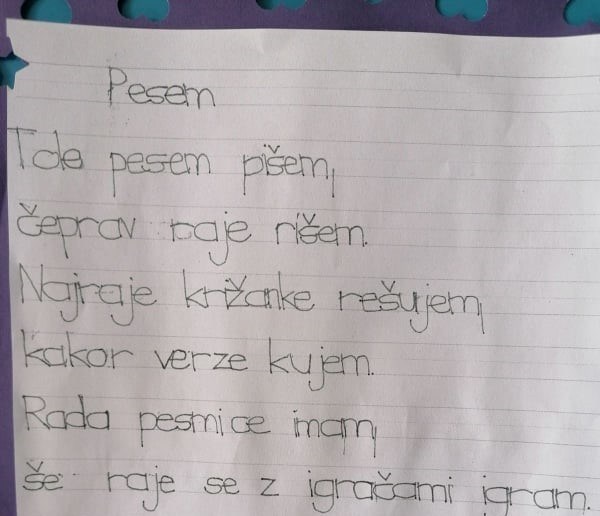 Pesem
Tole pesem pišem,
čeprav raje rišem.
Najraje križanke rešujem,
kakor verze kujem.
Rada pesmice imam,
še raje se z igračami igram.